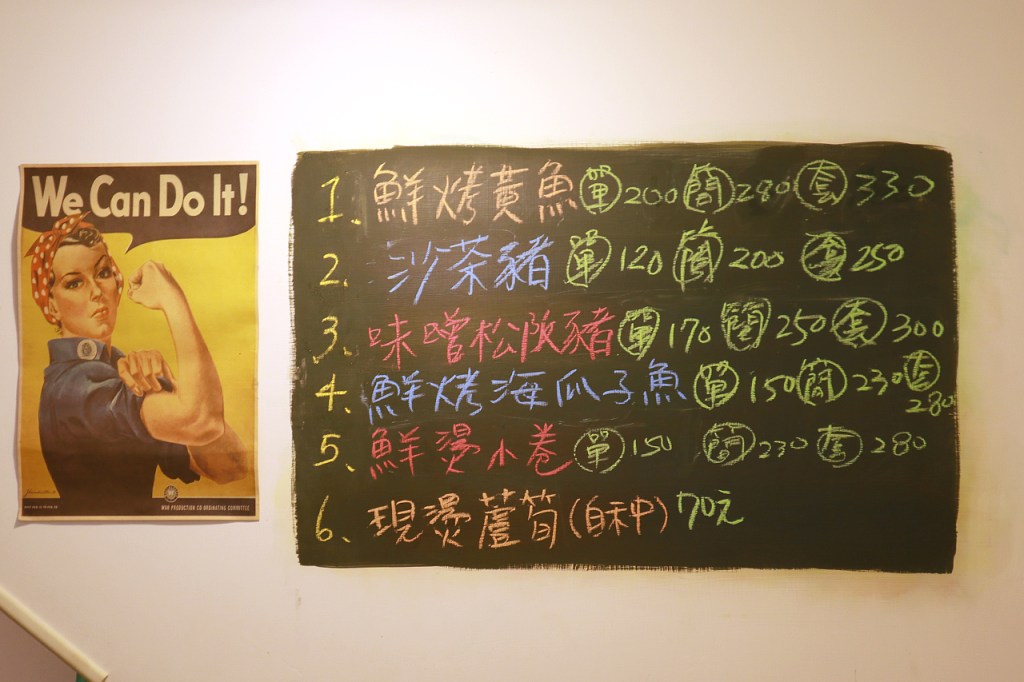 We Can Do It!
WAR PRODUCTION CO-ORDINATING COMMITTEE
1、鮮烤黃魚 單 200 簡 280 套 330
2、沙茶豬 單 120 簡 200 套 250
3、味噌松阪豬 單 170 簡 250 套 300
4、鮮烤海瓜子魚 單 150 簡 230 套 280
5、鮮燙小卷 單 150 簡 230 套 280
6、現燙蘆筍(自種) 70元